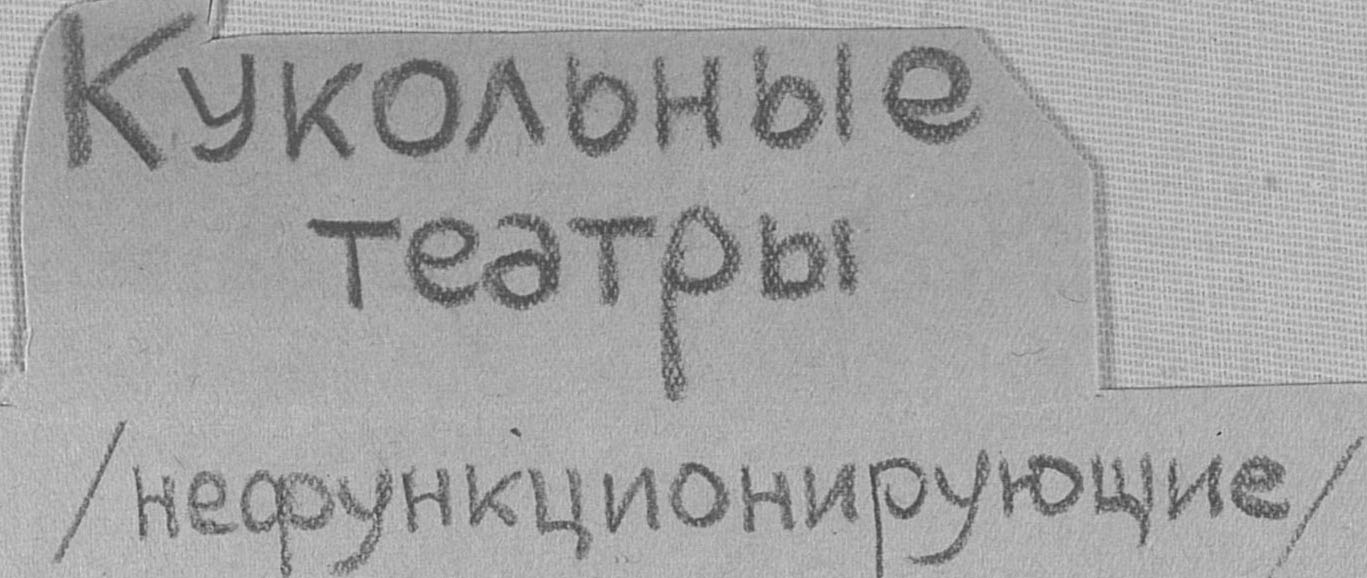 Кукольные
театры
/нефункционирующие/